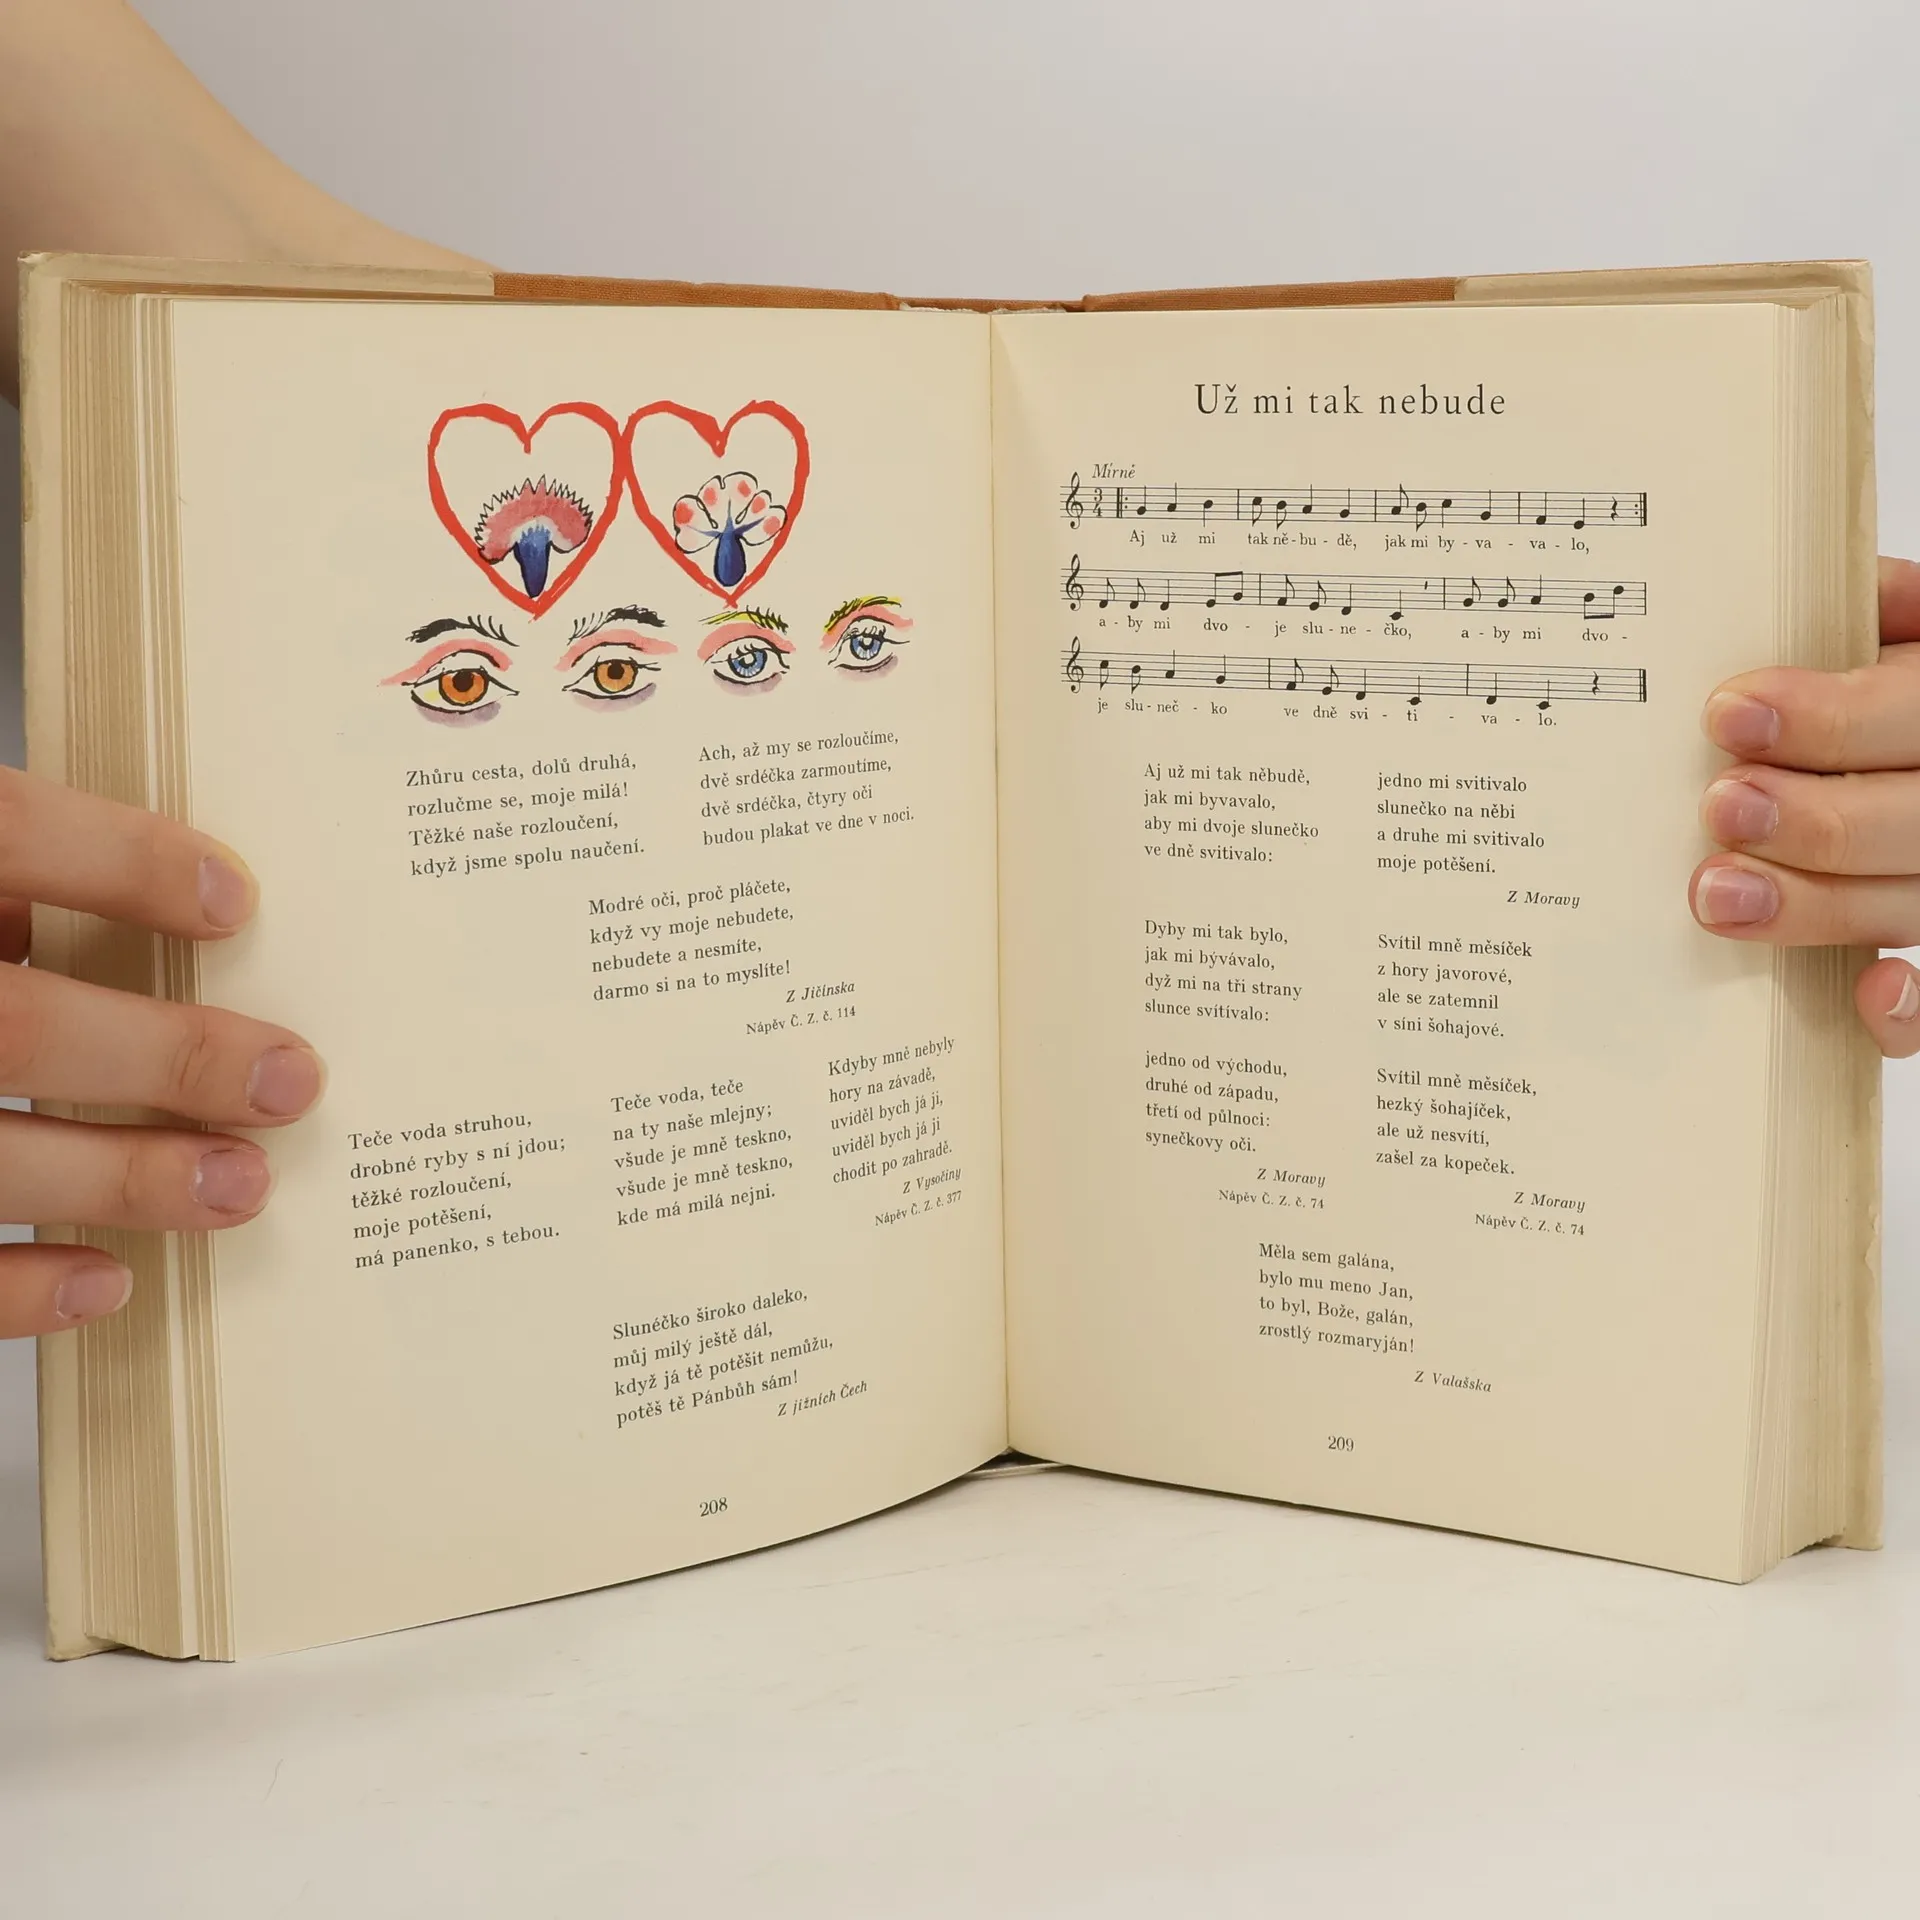 Zhůru cesta, dolů druhá,
rozlučme se, moje milá!
Těžké naše rozloučení,
když jsme spolu naučení.
Ach, až my se rozloučíme,
dvě srdéčka zarmoutíme,
dvě srdéčka, čtyry oči
budou plakat ve dne v noci.
Modré oči, proč pláčete,
když vy moje nebudete,
nebudete a nesmíte,
darmo si na to myslíte!
Z Jičínska
Nápěv Č. Z. č. 114
Teče voda struhou,
drobné ryby s ní jdou;
těžké rozloučení,
moje potěšení,
má panenko, s tebou.
Teče voda, teče
na ty naše mlejny;
všude je mně teskno,
všude je mně teskno,
kde má milá nejni.
Kdyby mně nebyly
hory na závadě,
uviděl bych já ji,
uviděl bych já ji
chodit po zahradě.
Z Vysočiny
Nápěv Č. Z. č. 377
Slunéčko široko daleko,
můj milý ještě dál,
když já tě potěšit nemůžu,
potěš tě Pánbůh sám!
Z jižních Čech
208
Už mi tak nebude
Mírně
3
4
Aj už mi tak ně - bu - dě, jak mi by - va - va - lo,
a - by mi dvo - je slu - ne - čko, a - by mi dvo -
je slu - neč - ko ve dně svi - ti - va - lo.
Aj už mi tak něbudě,
jak mi byvavalo,
aby mi dvoje slunečko
ve dně svitivalo:
jedno mi svitivalo
slunečko na něbi
a druhe mi svitivalo
moje potěšení.
Z Moravy
Dyby mi tak bylo,
jak mi bývávalo,
dyž mi na tři strany
slunce svítívalo:
jedno od východu,
druhé od západu,
třetí od půlnoci:
synečkovy oči.
Z Moravy
Nápěv Č. Z. č. 74
Svítil mně měsíček
z hory javorové,
ale se zatemnil
v síni šohajové.
Svítil mně měsíček,
hezký šohajíček,
ale už nesvítí,
zašel za kopeček.
Z Moravy
Nápěv Č. Z. č. 74
Měla sem galána,
bylo mu meno Jan,
to byl, Bože, galán,
zrostlý rozmaryján!
Z Valašska
209